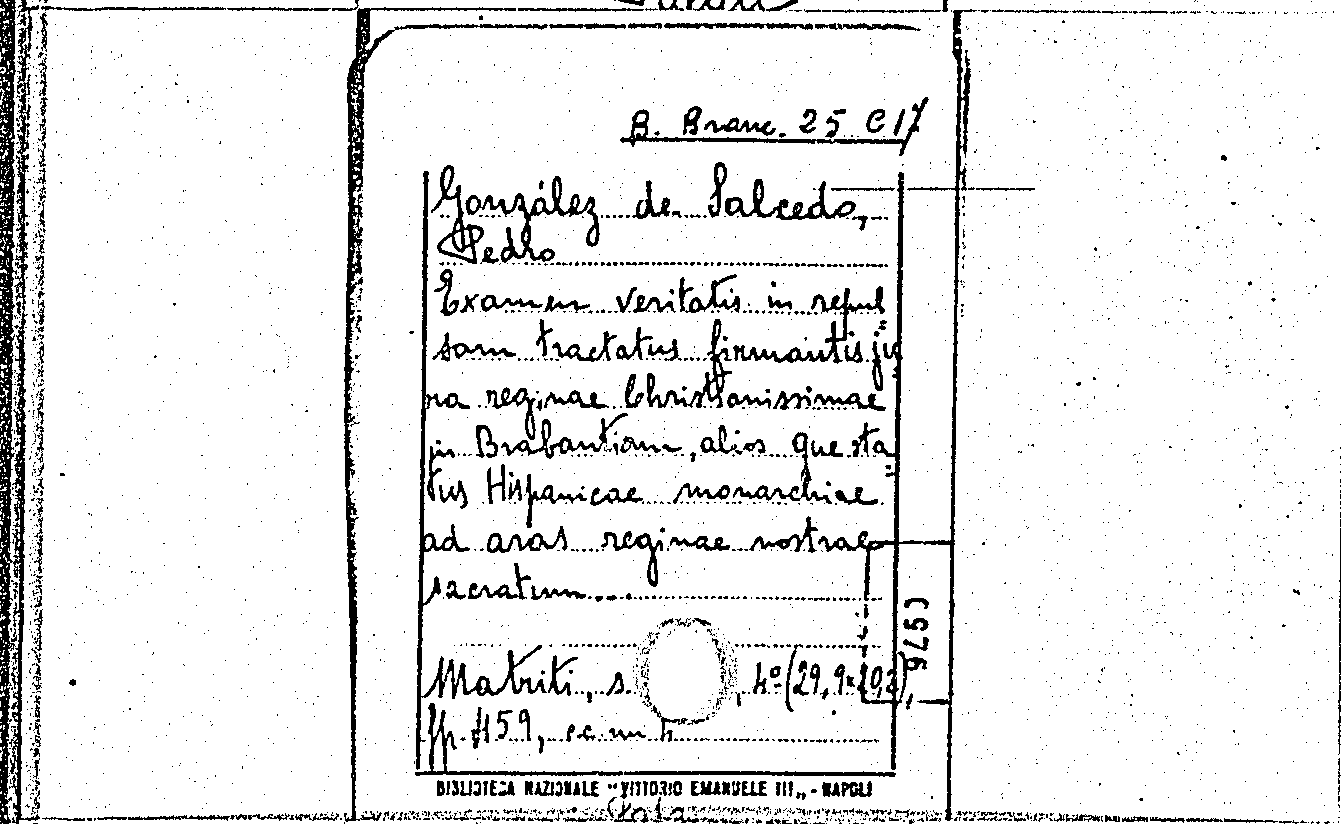 B. Branc. 25 C 17
González de Salcedo,
Pedro
Examen veritatis in repul
sam tractatus firmantis ju
ra reginae Christianissimae
in Brabantiam, alios que sta
tus Hispanicae monarchiae
ad aras reginae nostrae
sacratum...
Matriti, s. , 4º (29,9x20,2),
pp. 159,
(9753
BIBLIOTECA NAZIONALE "VITTORIO EMANUELE III" - NAPOLI